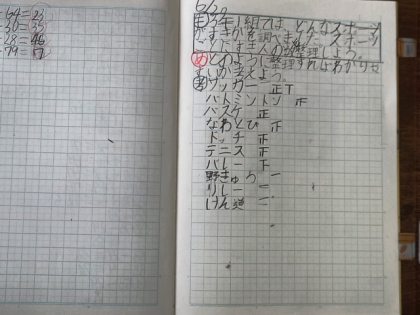 64=23
30=35
28=46
79=17
6/3
3年1組では、どんなスポーツ
がすきか調べました。スポーツ
ごとにすきな人の数を整理しよう。
め どのように整理すればわかりや
すいか考えよう。
サッカー 正T
バトミントン 正
バスケ 正
なわとび 正
ドッチ 正
テニス 正
バレー 下
野きゅう 一
リレー 一
けん道 一